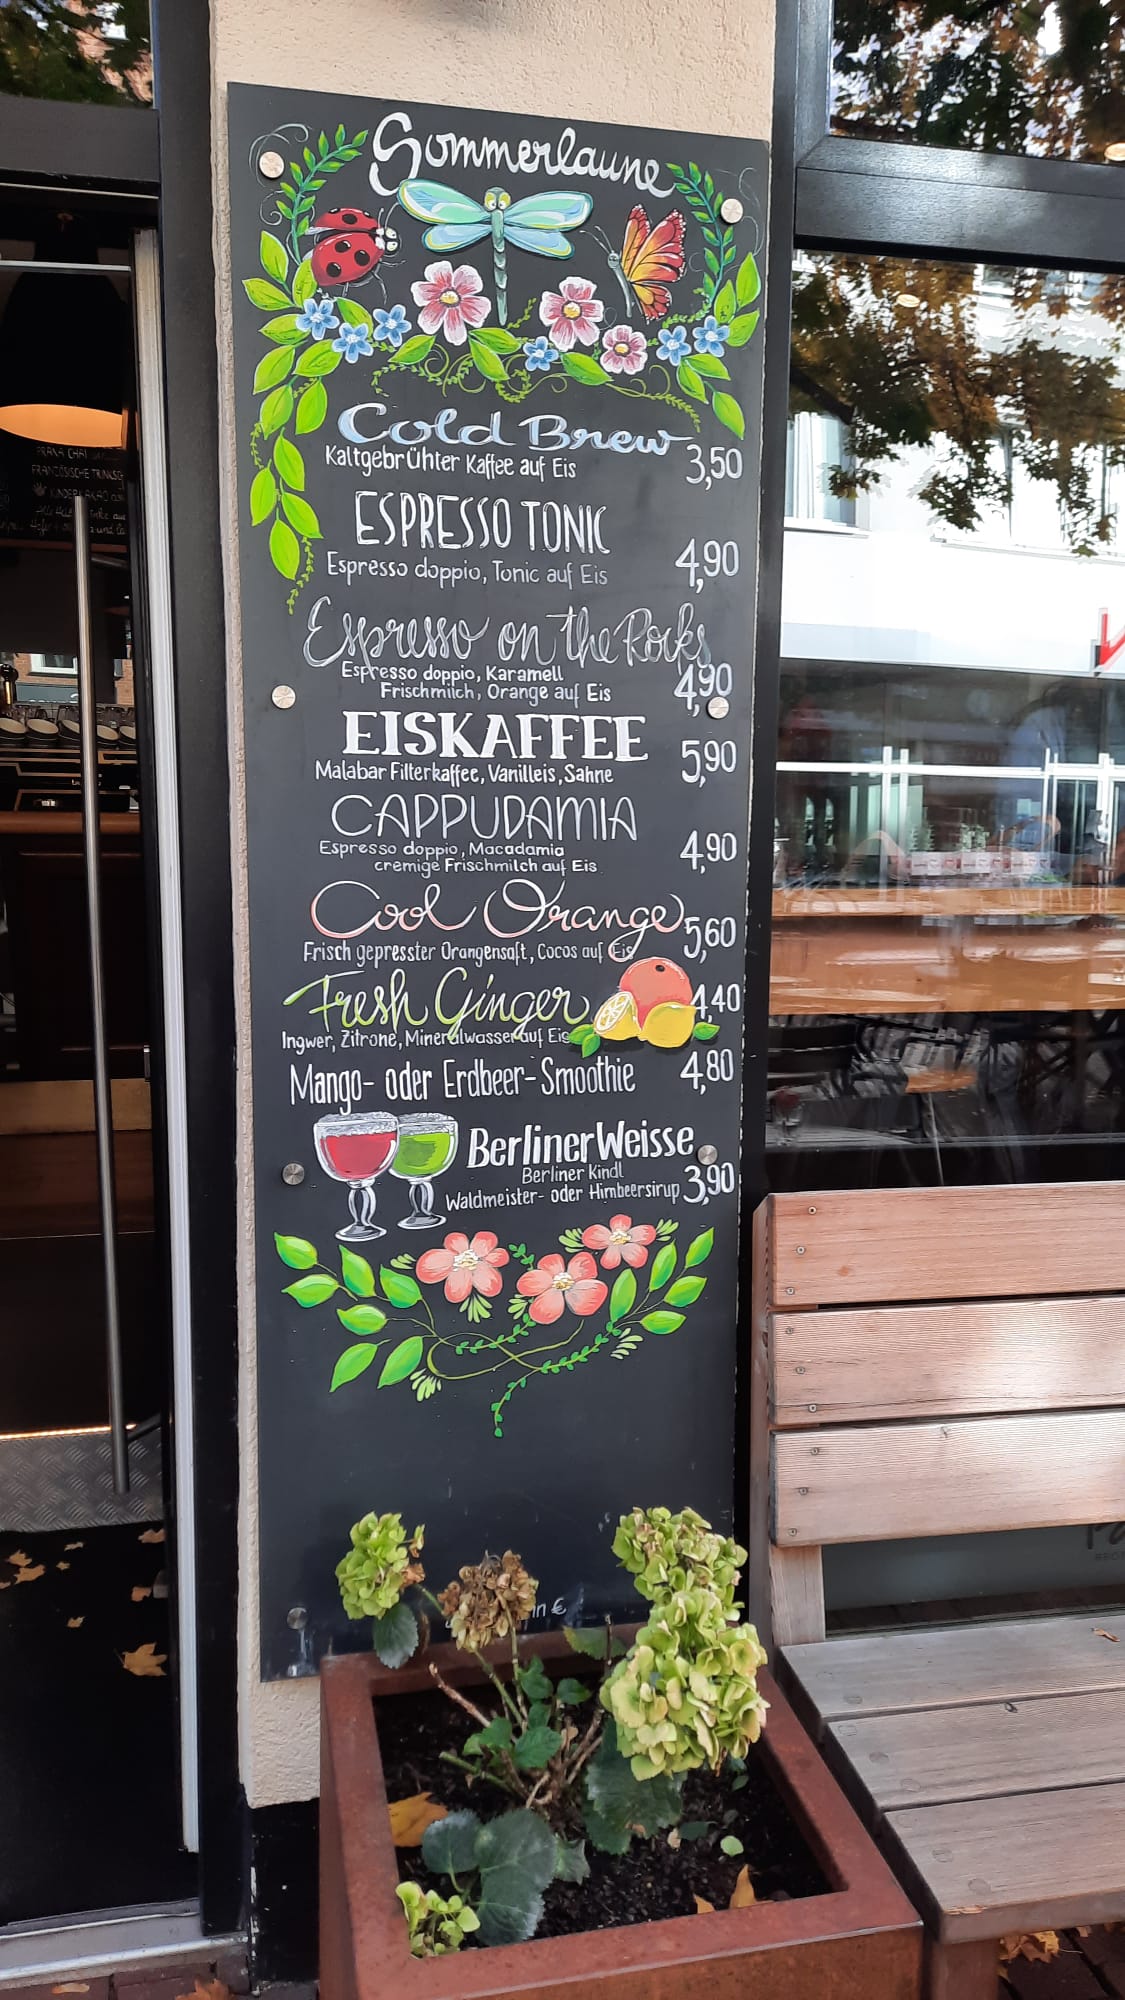 Sommerlaune
Cold Brew
Kaltgebrühter Kaffee auf Eis 3,50
ESPRESSO TONIC
Espresso doppio, Tonic auf Eis 4,90
Espresso on the Rocks
Espresso doppio, Karamell
Frischmilch, Orange auf Eis 4,90
EISKAFFEE
Malabar Filterkaffee, Vanilleis, Sahne 5,90
CAPPUDAMIA
Espresso doppio, Macadamia
cremige Frischmilch auf Eis 4,90
Cool Orange
Frisch gepresster Orangensaft, Cocos auf Eis 5,60
Fresh Ginger 4,40
Ingwer, Zitrone, Mineralwasser auf Eis
Mango- oder Erdbeer-Smoothie 4,80
Berliner Weisse
Berliner Kindl
Waldmeister- oder Himbeersirup 3,90
in €
PRANA CHAI
FRANZÖSISCHE
KINDERKAKAO